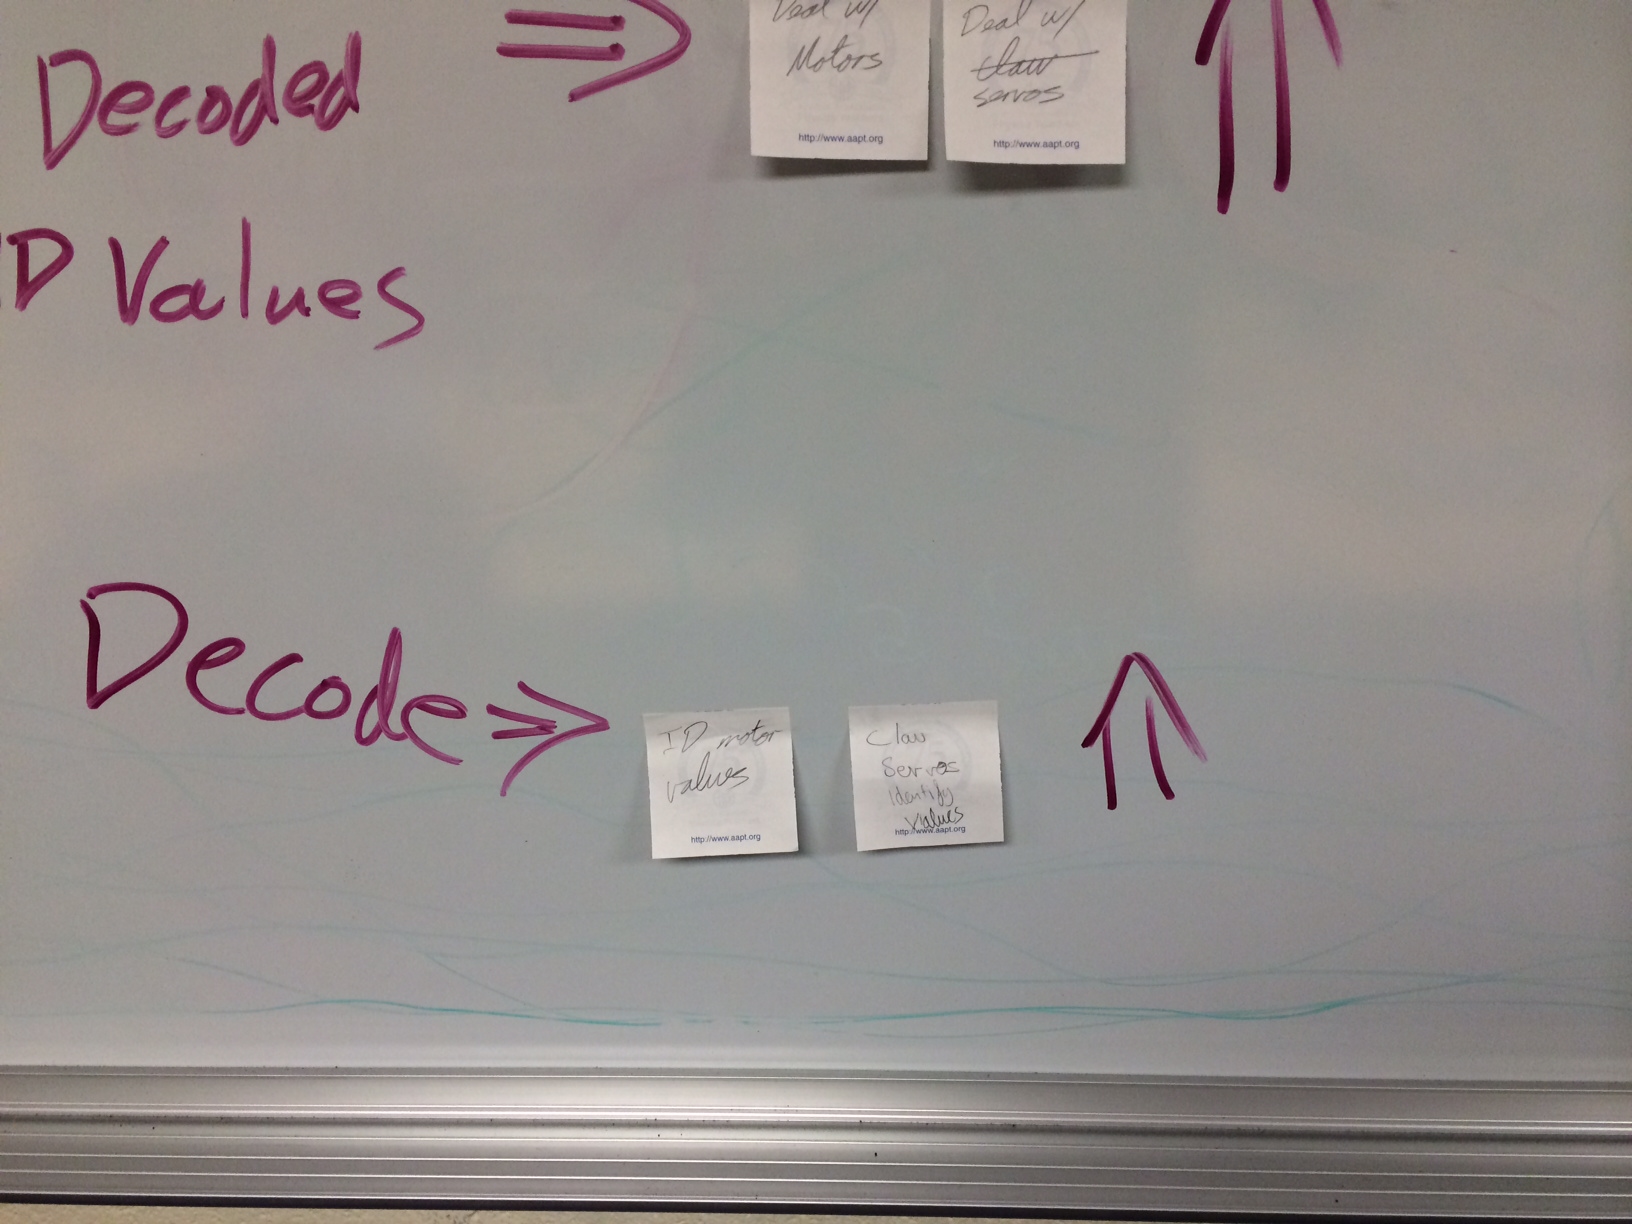 Decoded
ID Values
Deal w/
Motors
http://www.aapt.org
Deal w/
claw
servos
http://www.aapt.org
Decode
ID motor
values
http://www.aapt.org
Claw
Servos
Identify
values
http://www.aapt.org